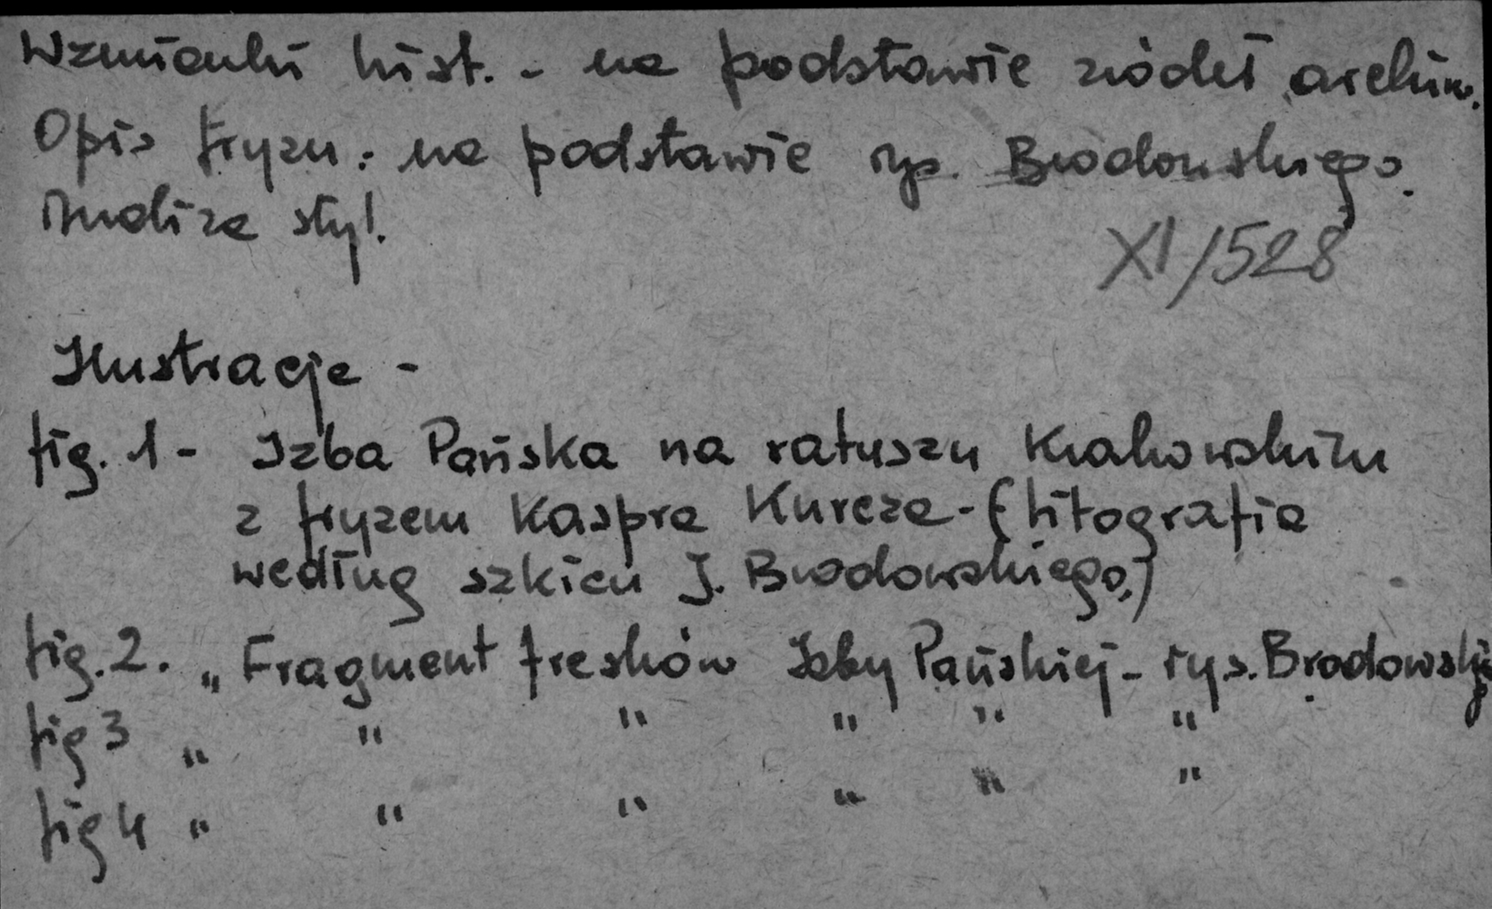 Wzmianki hist. - na podstawie źródeł archiw.
Opis fryzu: na podstawie rys. Brodowskiego.
Analiza styl.
XI/528
Ilustracje -
fig. 1 - Izba Pańska na ratuszu Krakowskim
z fryzem Kaspra Kurcza - (litografia
według szkicu J. Brodowskiego.)
fig. 2. „ Fragment fresków Izby Pańskiej - rys. Brodowskiego
fig 3 „ " " " " "
fig 4 " " " " " "